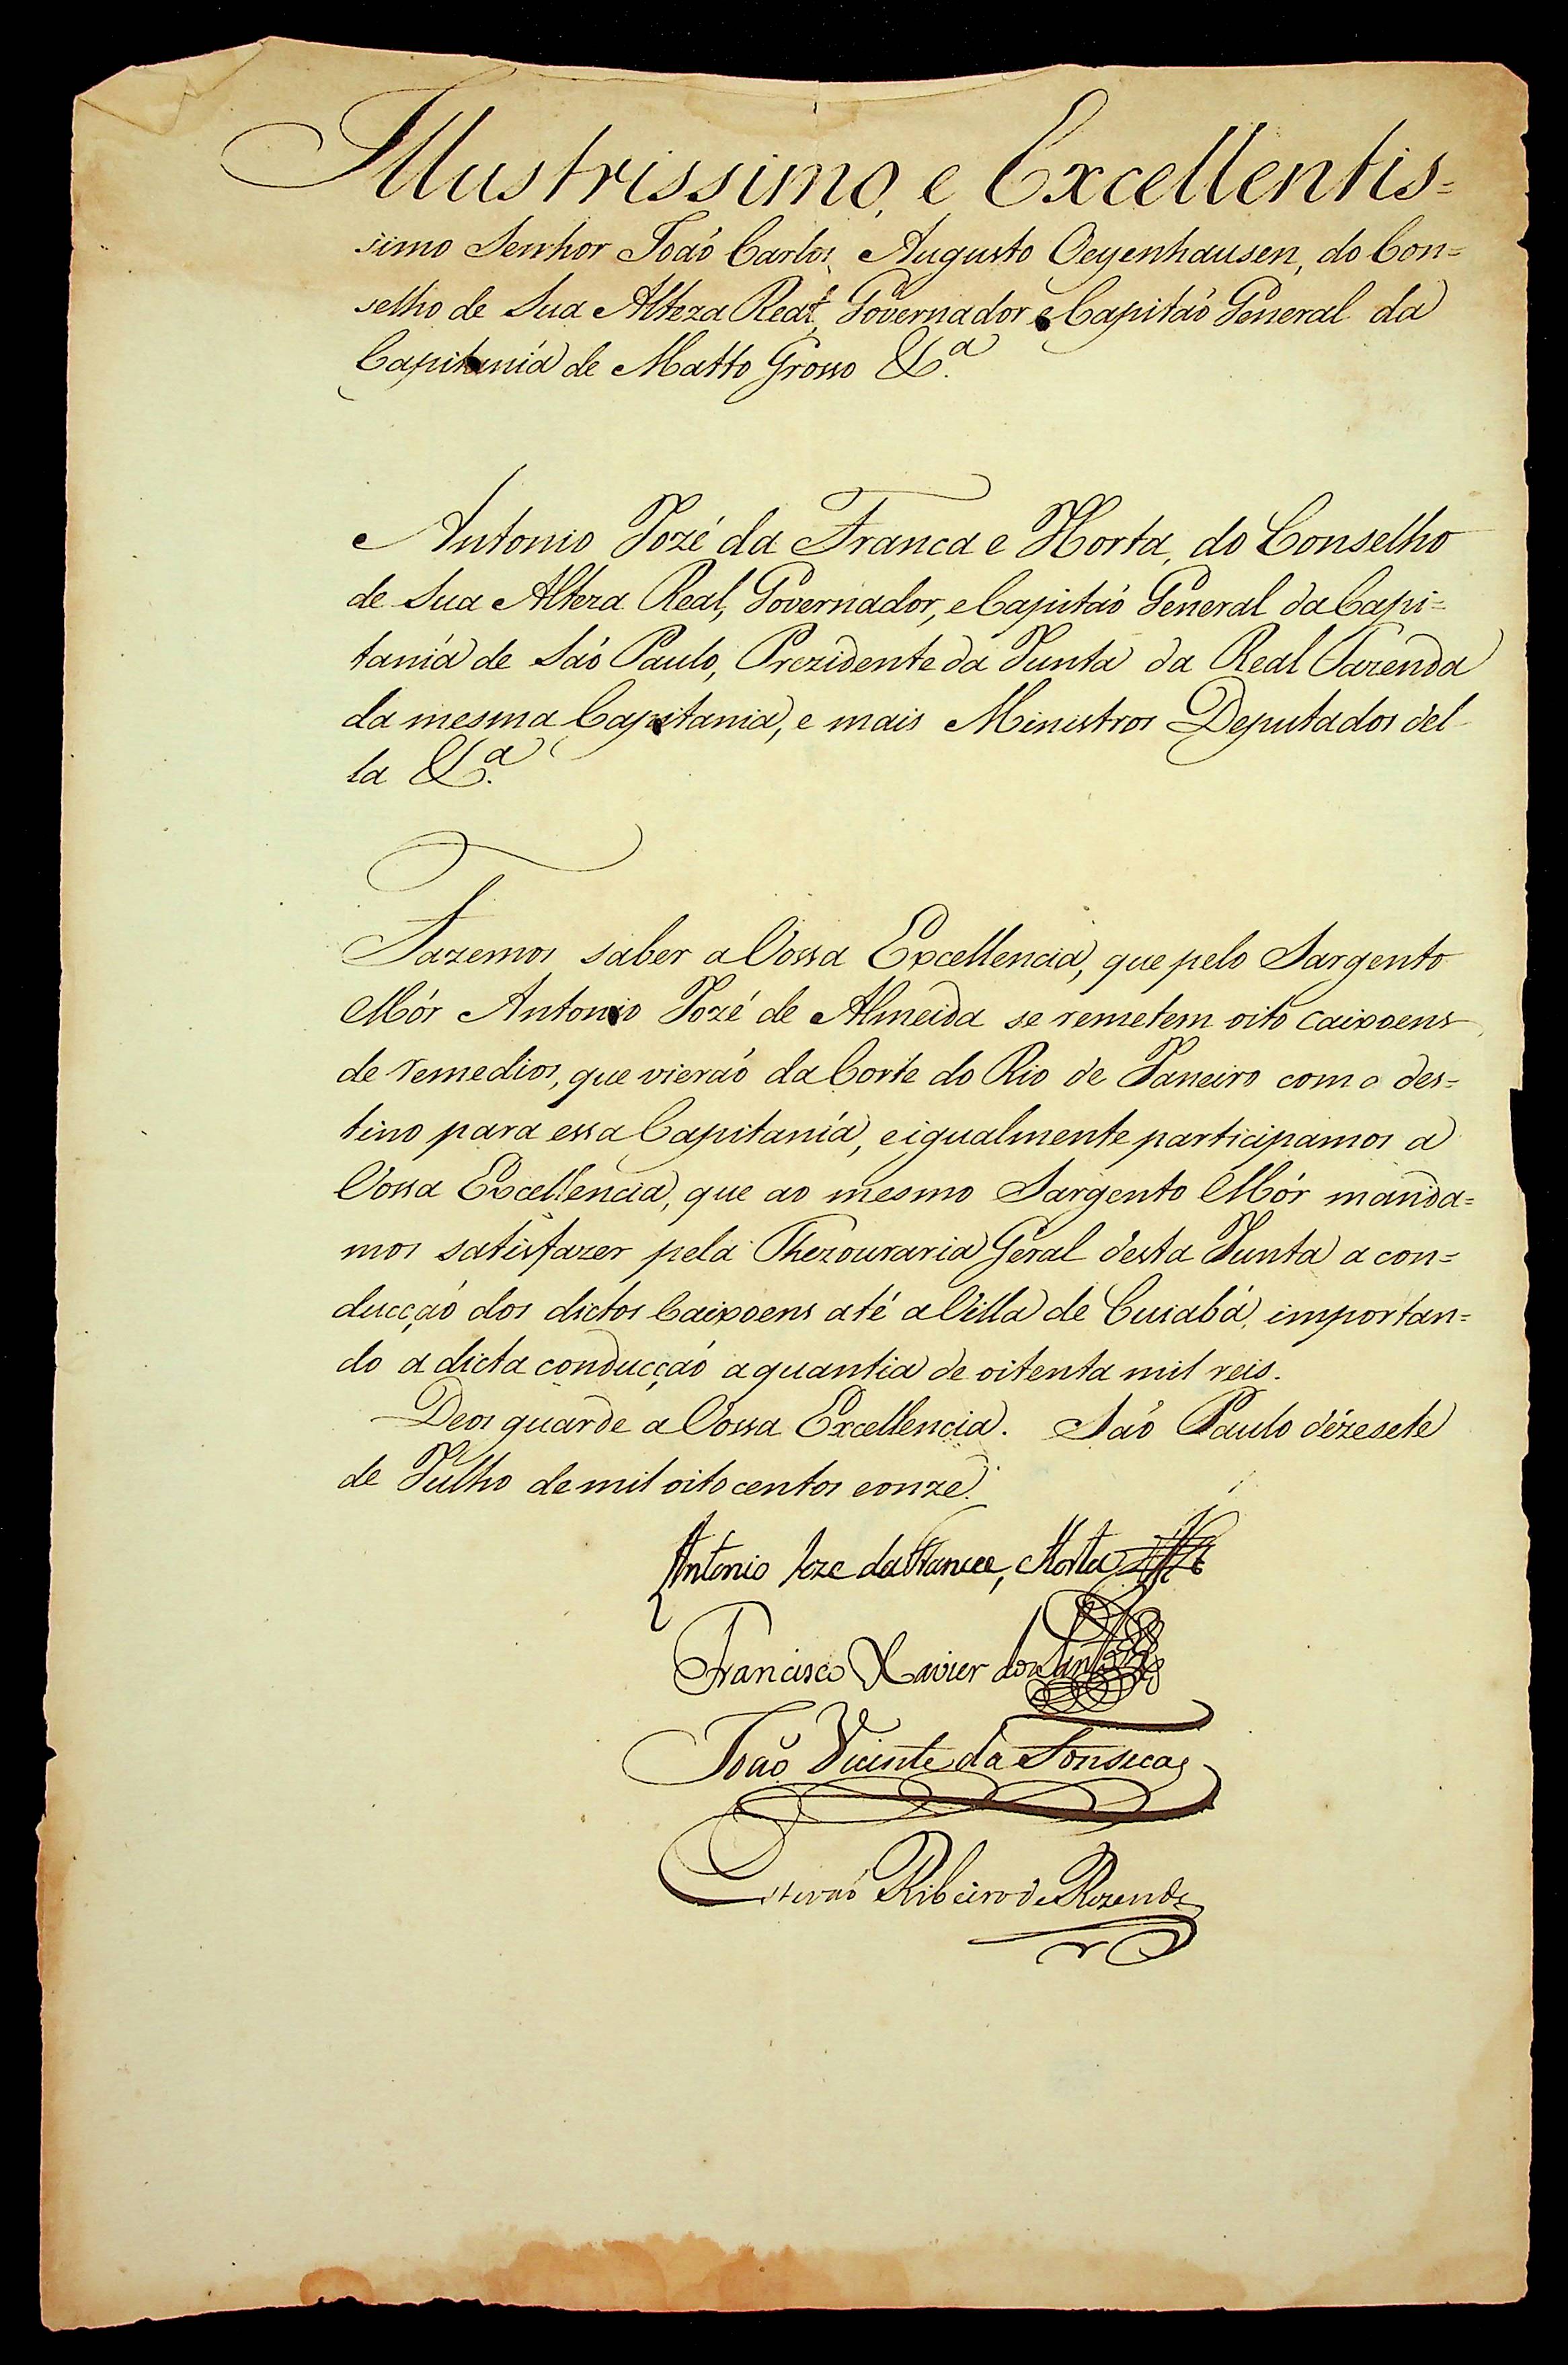 Illustrissimo, e Excellentis=
simo Senhor João Carlos Augusto Oeyenhausen, do Con=
selho de Sua Alteza Real, Governador e Capitão General da
Capitanía de Matto Grosso &.ª
Antonio Jozé da Franca e Horta, do Conselho
de Sua Alteza Real, Governador, e Capitão General da Capi=
tanía de São Paulo, Prezidente da Junta da Real Fazenda
da mesma Capitania, e mais Ministros Deputados del
la &.ª
Fazemos saber a Vossa Excellencia, que pelo Sargento
Mór Antonio Jozé de Almeida se remetem oito caixoens
de remedios, que vierão da Corte do Rio de Janeiro com o des=
tino para essa Capitanía, e igualmente participamos a
Vossa Excellencia, que ao mesmo Sargento Mór manda=
mos satisfazer pela Thezouraria Geral desta Junta a con=
ducção dos dictos Caixoens até a Villa de Cuiabá, importan=
do a dicta conducção a quantia de oitenta mil reis.
Deos guarde a Vossa Excellencia. São Paulo dézesete
de Julho de mil oito centos e onze.
Antonio Joze da Franca, e Horta
Francisco Xavier dos Santos
João Vicente da Fonseca
Estevaõ Ribeiro de Rezende